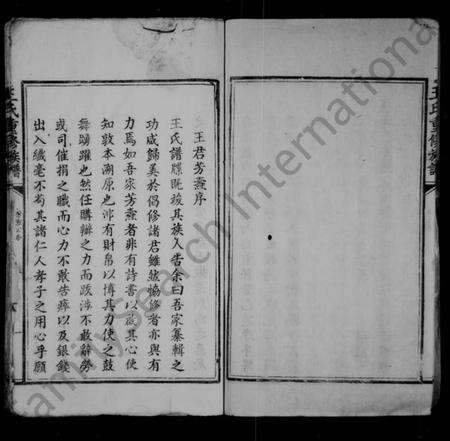 王君芳蕤序
王氏譜牒既竣其族人告余曰吾家纂輯之
功咸歸美於倡修諸君雖然協修者亦與有
力焉如吾家芳蕤者非有詩書以啟其心使
知敦本溯原也非有財帛以博其力使之鼓
舞踴躍也然任購辦之力而跋涉不敢辭勞
或司催捐之職而心力不敢告瘁以及銀錢
出入纖毫不苟其諸仁人孝子之用心乎願
王氏重修族譜
王氏重修族譜
FamilySearch International